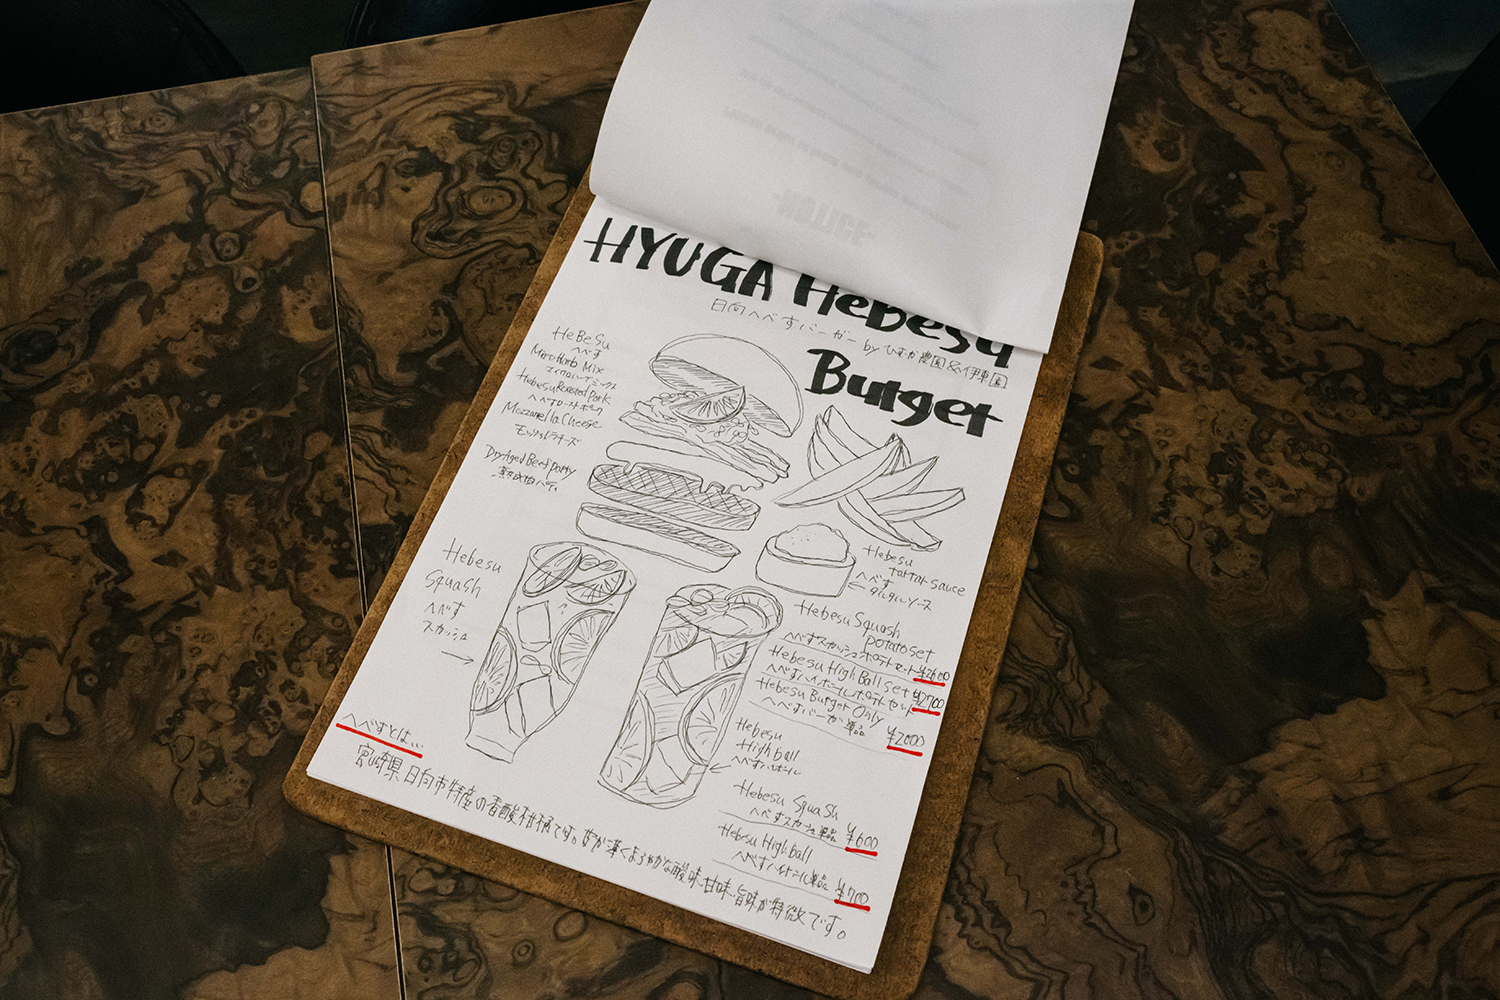 HYUGA HeBesu
日向へべすバーガー by ひすか農園&伊東園
Burger
HeBeSu
へべす
Micro Herb Mix
マイクロハーブミックス
Hebesu Roasted Pork
へべすローストポーク
Mozzarella Cheese
モッツァレラチーズ
Dry Aged Beef Patty
熟成パティ
Hebesu
tartar sauce
へべす
タルタルソース
Hebesu
Squash
へべす
スカッシュ
Hebesu Squash
potato set
へべすスカッシュポテトセット ¥2600
Hebesu High Ball set
へべすハイボールポテトセット ¥2700
Hebesu Burger Only
へべすバーガー単品 ¥2000
Hebesu
High ball
へべすハイボール
Hebesu Squash
へべすスカッシュ単品 ¥600
Hebesu High ball
へべすハイボール単品 ¥700
へべすとは...
宮崎県日向市特産の香酸柑橘です。皮が薄くまろやかな酸味、甘味、旨味が特徴です。